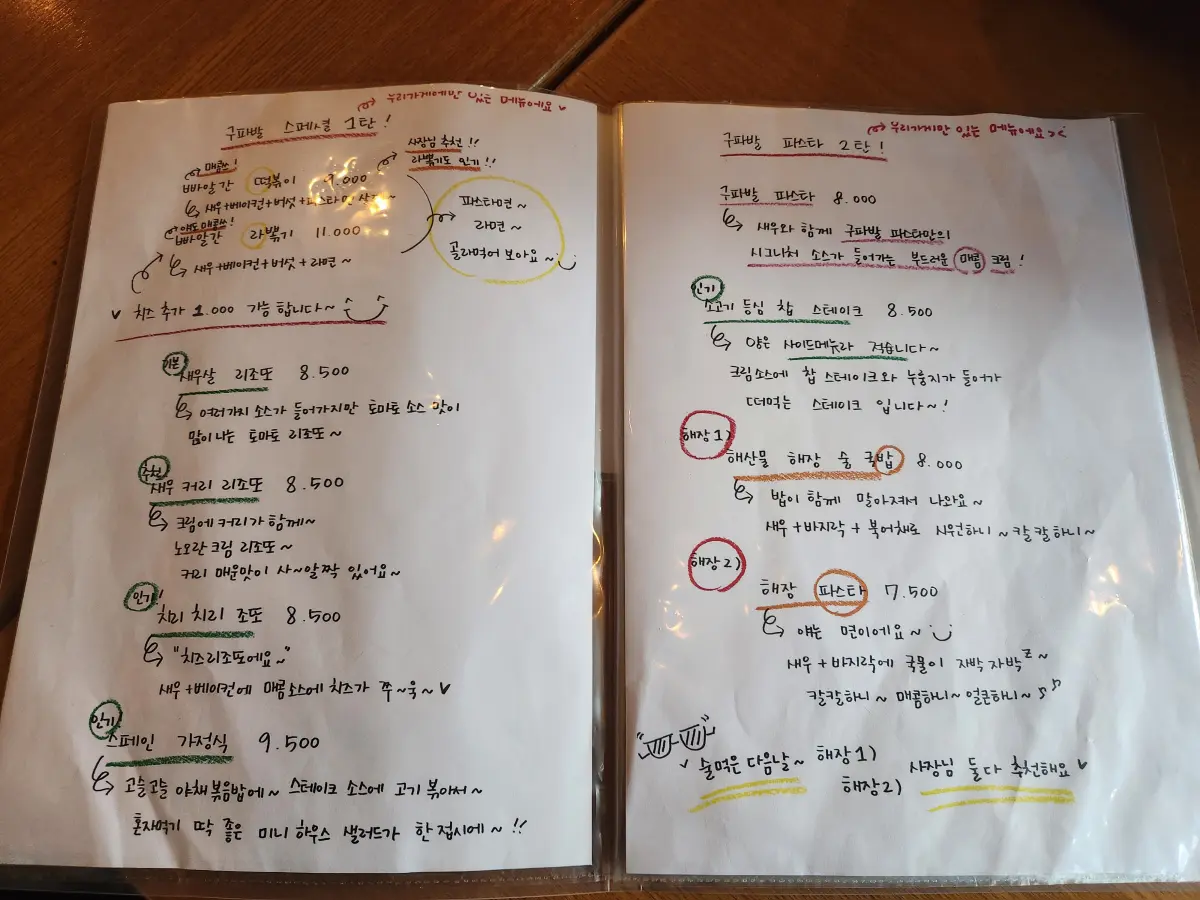 우리가게에만 있는 메뉴에요
구파발 스페셜 1탄!
사장님 추천!!
라뽂기도 인기!!
매콤쓰!
빠알간 떡볶이 9.000
새우+베이컨+버섯+파스타면
얘도매콤쓰!
빠알간 라뽂기 11.000
새우+베이컨+버섯+라면~
파스타면~
라면~
골라먹어 보아요~
치즈 추가 1.000 가능 합니다~
기본
새우살 리조또 8.500
여러가지 소스가 들어가지만 토마토 소스 맛이
많이 나는 토마토 리조또~
추천
새우 커리 리조또 8.500
크림에 커리가 함께~
노오란 크림 리조또~
커리 매운맛이 사~알짝 있어요~
인기
치미 치리 조또 8.500
"치즈리조또에요~"
새우+베이컨에 매콤소스에 치즈가 쭈~욱~
인기
스페인 가정식 9.500
고슬고슬 야채볶음밥에~ 스테이크 소스에 고기 볶아서~
혼자먹기 딱 좋은 미니 하우스 샐러드가 한 접시에~!!
우리가게만 있는 메뉴에요 ><
구파발 파스타 2탄!
구파발 파스타 8.000
새우와 함께 구파발 파스타만의
시그니처 소스가 들어가는 부드러운 매콤 크림!
인기
소고기 등심 찹 스테이크 8.500
양은 사이드메뉴라 적습니다~
크림소스에 찹 스테이크와 누룽지가 들어가
떠먹는 스테이크 입니다~!
해장 1)
해산물 해장 술 국밥 8.000
밥이 함께 말아져서 나와요~
새우+바지락+북어채로 시원하니~칼칼하니~
해장 2)
해장 파스타 7.500
얘는 면이에요~
새우+바지락에 국물이 자박자박~
칼칼하니~ 매콤하니~ 얼큰하니~
술먹은 다음날~ 해장1)
해장2) 사장님 둘다 추천해요